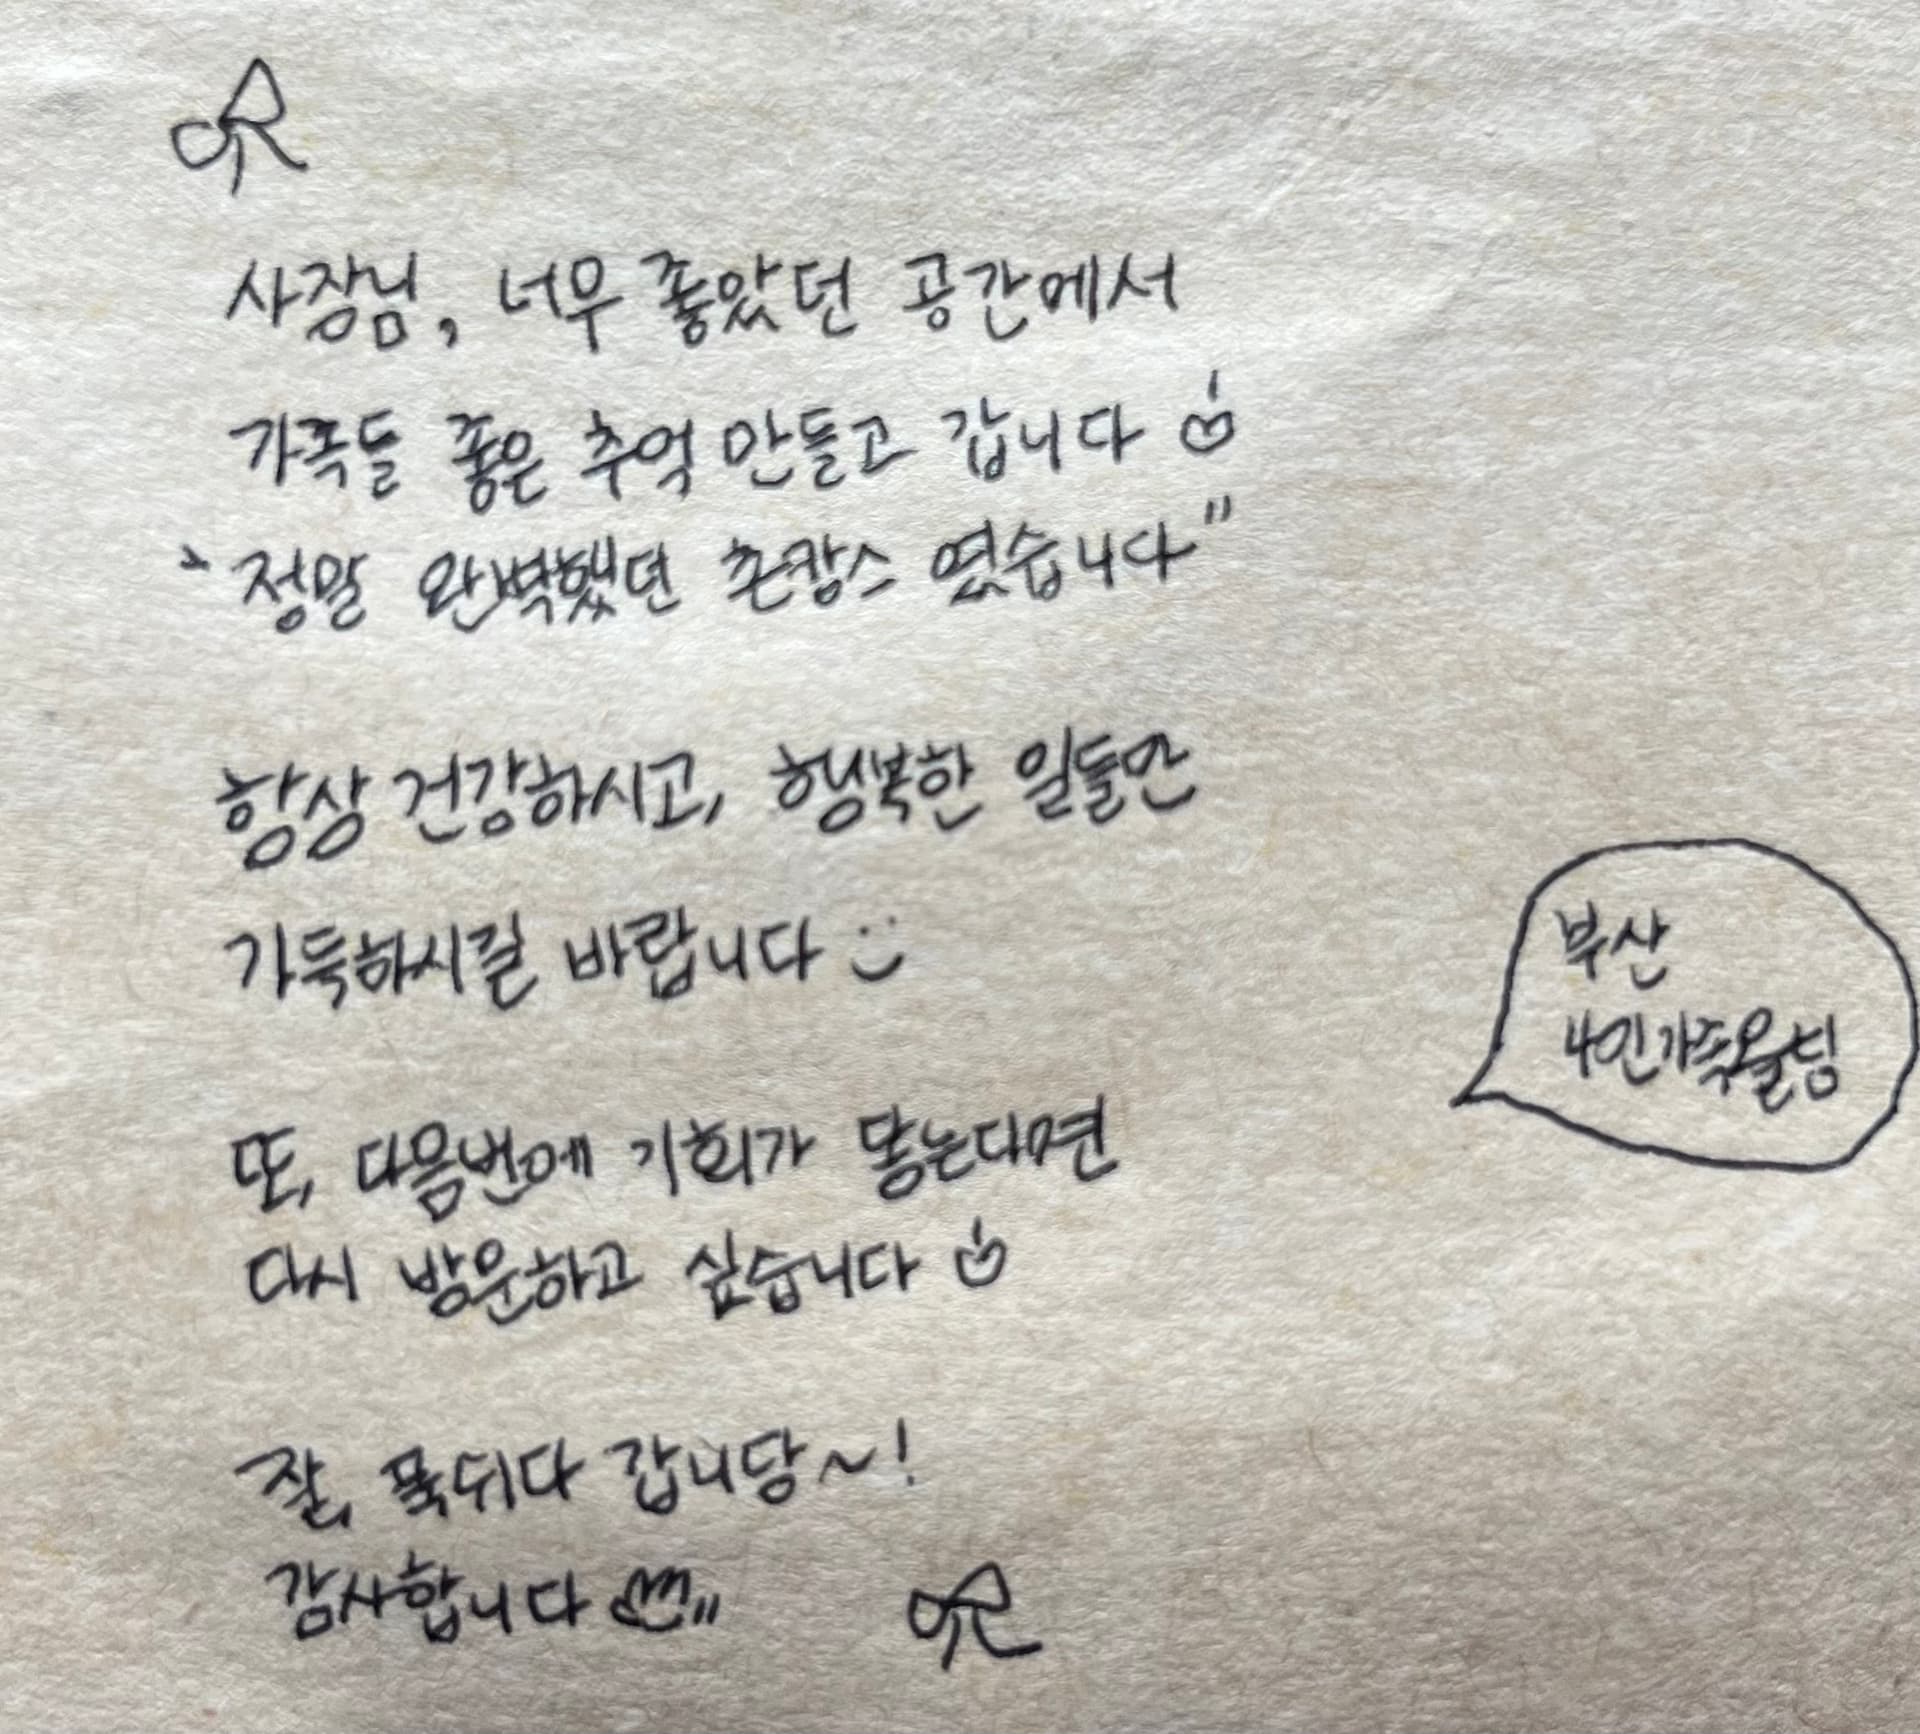 사장님, 너무 좋았던 공간에서
가족들 좋은 추억 만들고 갑니다
"정말 완벽했던 촌캉스 였습니다"
항상 건강하시고, 행복한 일들만
가득하시길 바랍니다 :)
또, 다음번에 기회가 닿는다면
다시 방문하고 싶습니다
잘, 푹쉬다 갑니당~!
감사합니다
부산
4인가족올림